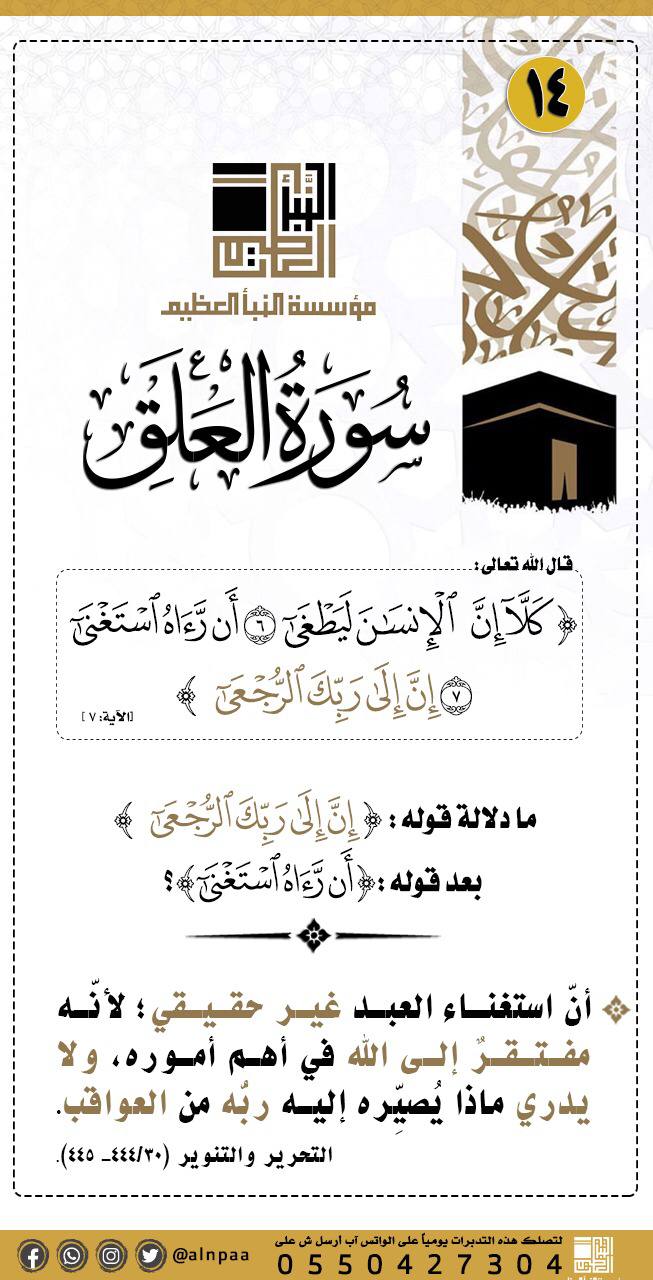 ١٤
النبأ العظيم
مؤسسة النبأ العظيم
سُورَةُ العَلَقِ
قال الله تعالى:
﴿ كَلَّآ إِنَّ ٱلْإِنسَٰنَ لَيَطْغَىٰٓ ٦ أَن رَّءَاهُ ٱسْتَغْنَىٰٓ
٧ إِنَّ إِلَىٰ رَبِّكَ ٱلرُّجْعَىٰٓ ﴾
[الآية: ٧]
ما دلالة قوله: ﴿ إِنَّ إِلَىٰ رَبِّكَ ٱلرُّجْعَىٰٓ ﴾
بعد قوله: ﴿أَن رَّءَاهُ ٱسْتَغْنَىٰٓ﴾؟
أنّ استغنـاء العبـد غيـر حقيـقي؛ لأنّـه
مفـتـقـرٌ إلـى الله في أهـم أمـوره، ولا
يدري ماذا يُصيِّره إليـه ربُّه من العواقب.
التحرير والتنوير (٣٠/ ٤٤٤ـ ٤٤٥).
لتصلك هذه التدبرات يومياً على الواتس آب ارسل ش على
0550427304
@alnpaa